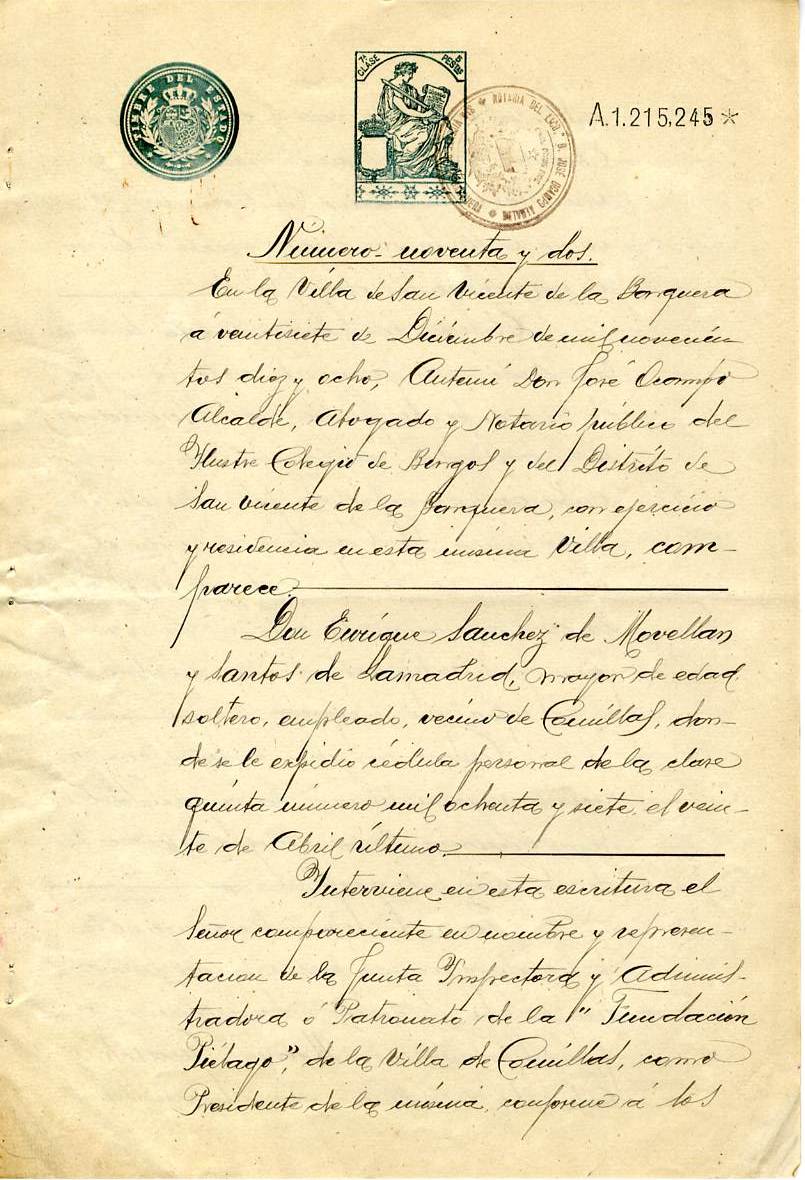 TIMBRE DEL ESTADO
7ª CLASE
5 PESTAS
NOTARIA DEL LCDO. D. JOSÉ OCAMPO ALCALDE
A.1.215,245 *
Número noventa y dos.
En la Villa de San Vicente de la Barquera
á veintisiete de Diciembre de mil novecien
tos diez y ocho, Antemi Don José Ocampo
Alcalde, Abogado y Notario público del
Ylustre Colegio de Burgos y del Distrito de
San Vicente de la Barquera, con ejercicio
y residencia en esta misma Villa, com-
parece.
Don Enrique Sanchez de Movellan
y Santos de Lamadrid, mayor de edad,
soltero, empleado, vecino de Comillas, don-
de se le expidio cédula personal de la clase
quinta número mil ochenta y siete, el vein-
te de Abril último.
Interviene en esta escritura el
Señor compareciente en nombre y represen-
tacion de la Junta Ynspectora y Adminis-
tradora ó Patronato de la "Fundación
Piélago", de la Villa de Comillas, como
Presidente de la misma, conforme á los